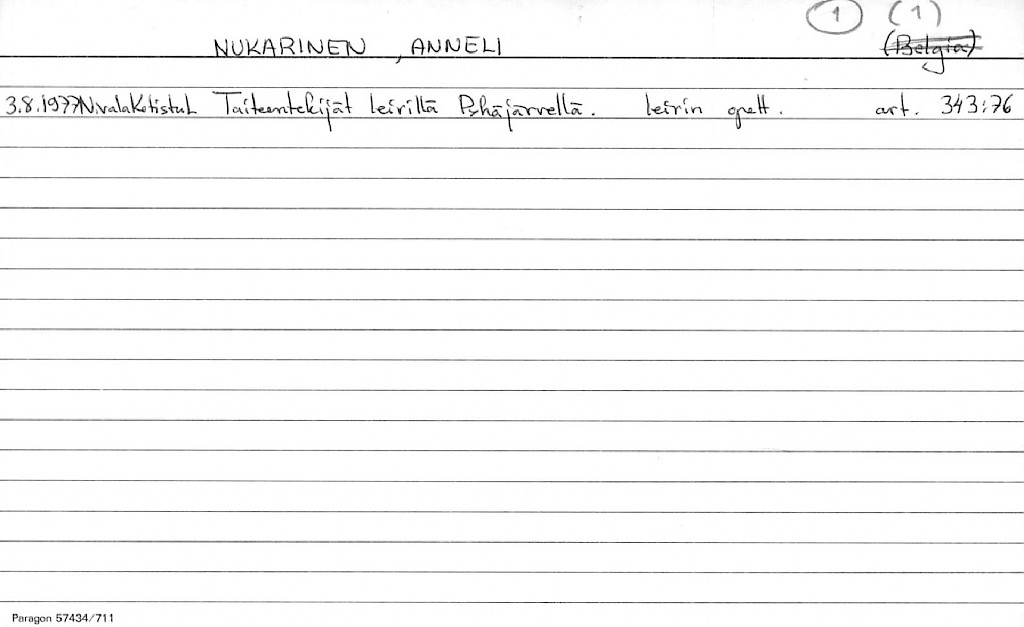 1 (1)
NUKARINEN, ANNELI (Belgia)
3.8.1977 Nivala Kotistul Taiteentekijät leirillä Pyhäjärvellä. leirin opett. art. 343:76
Paragon 57434/711